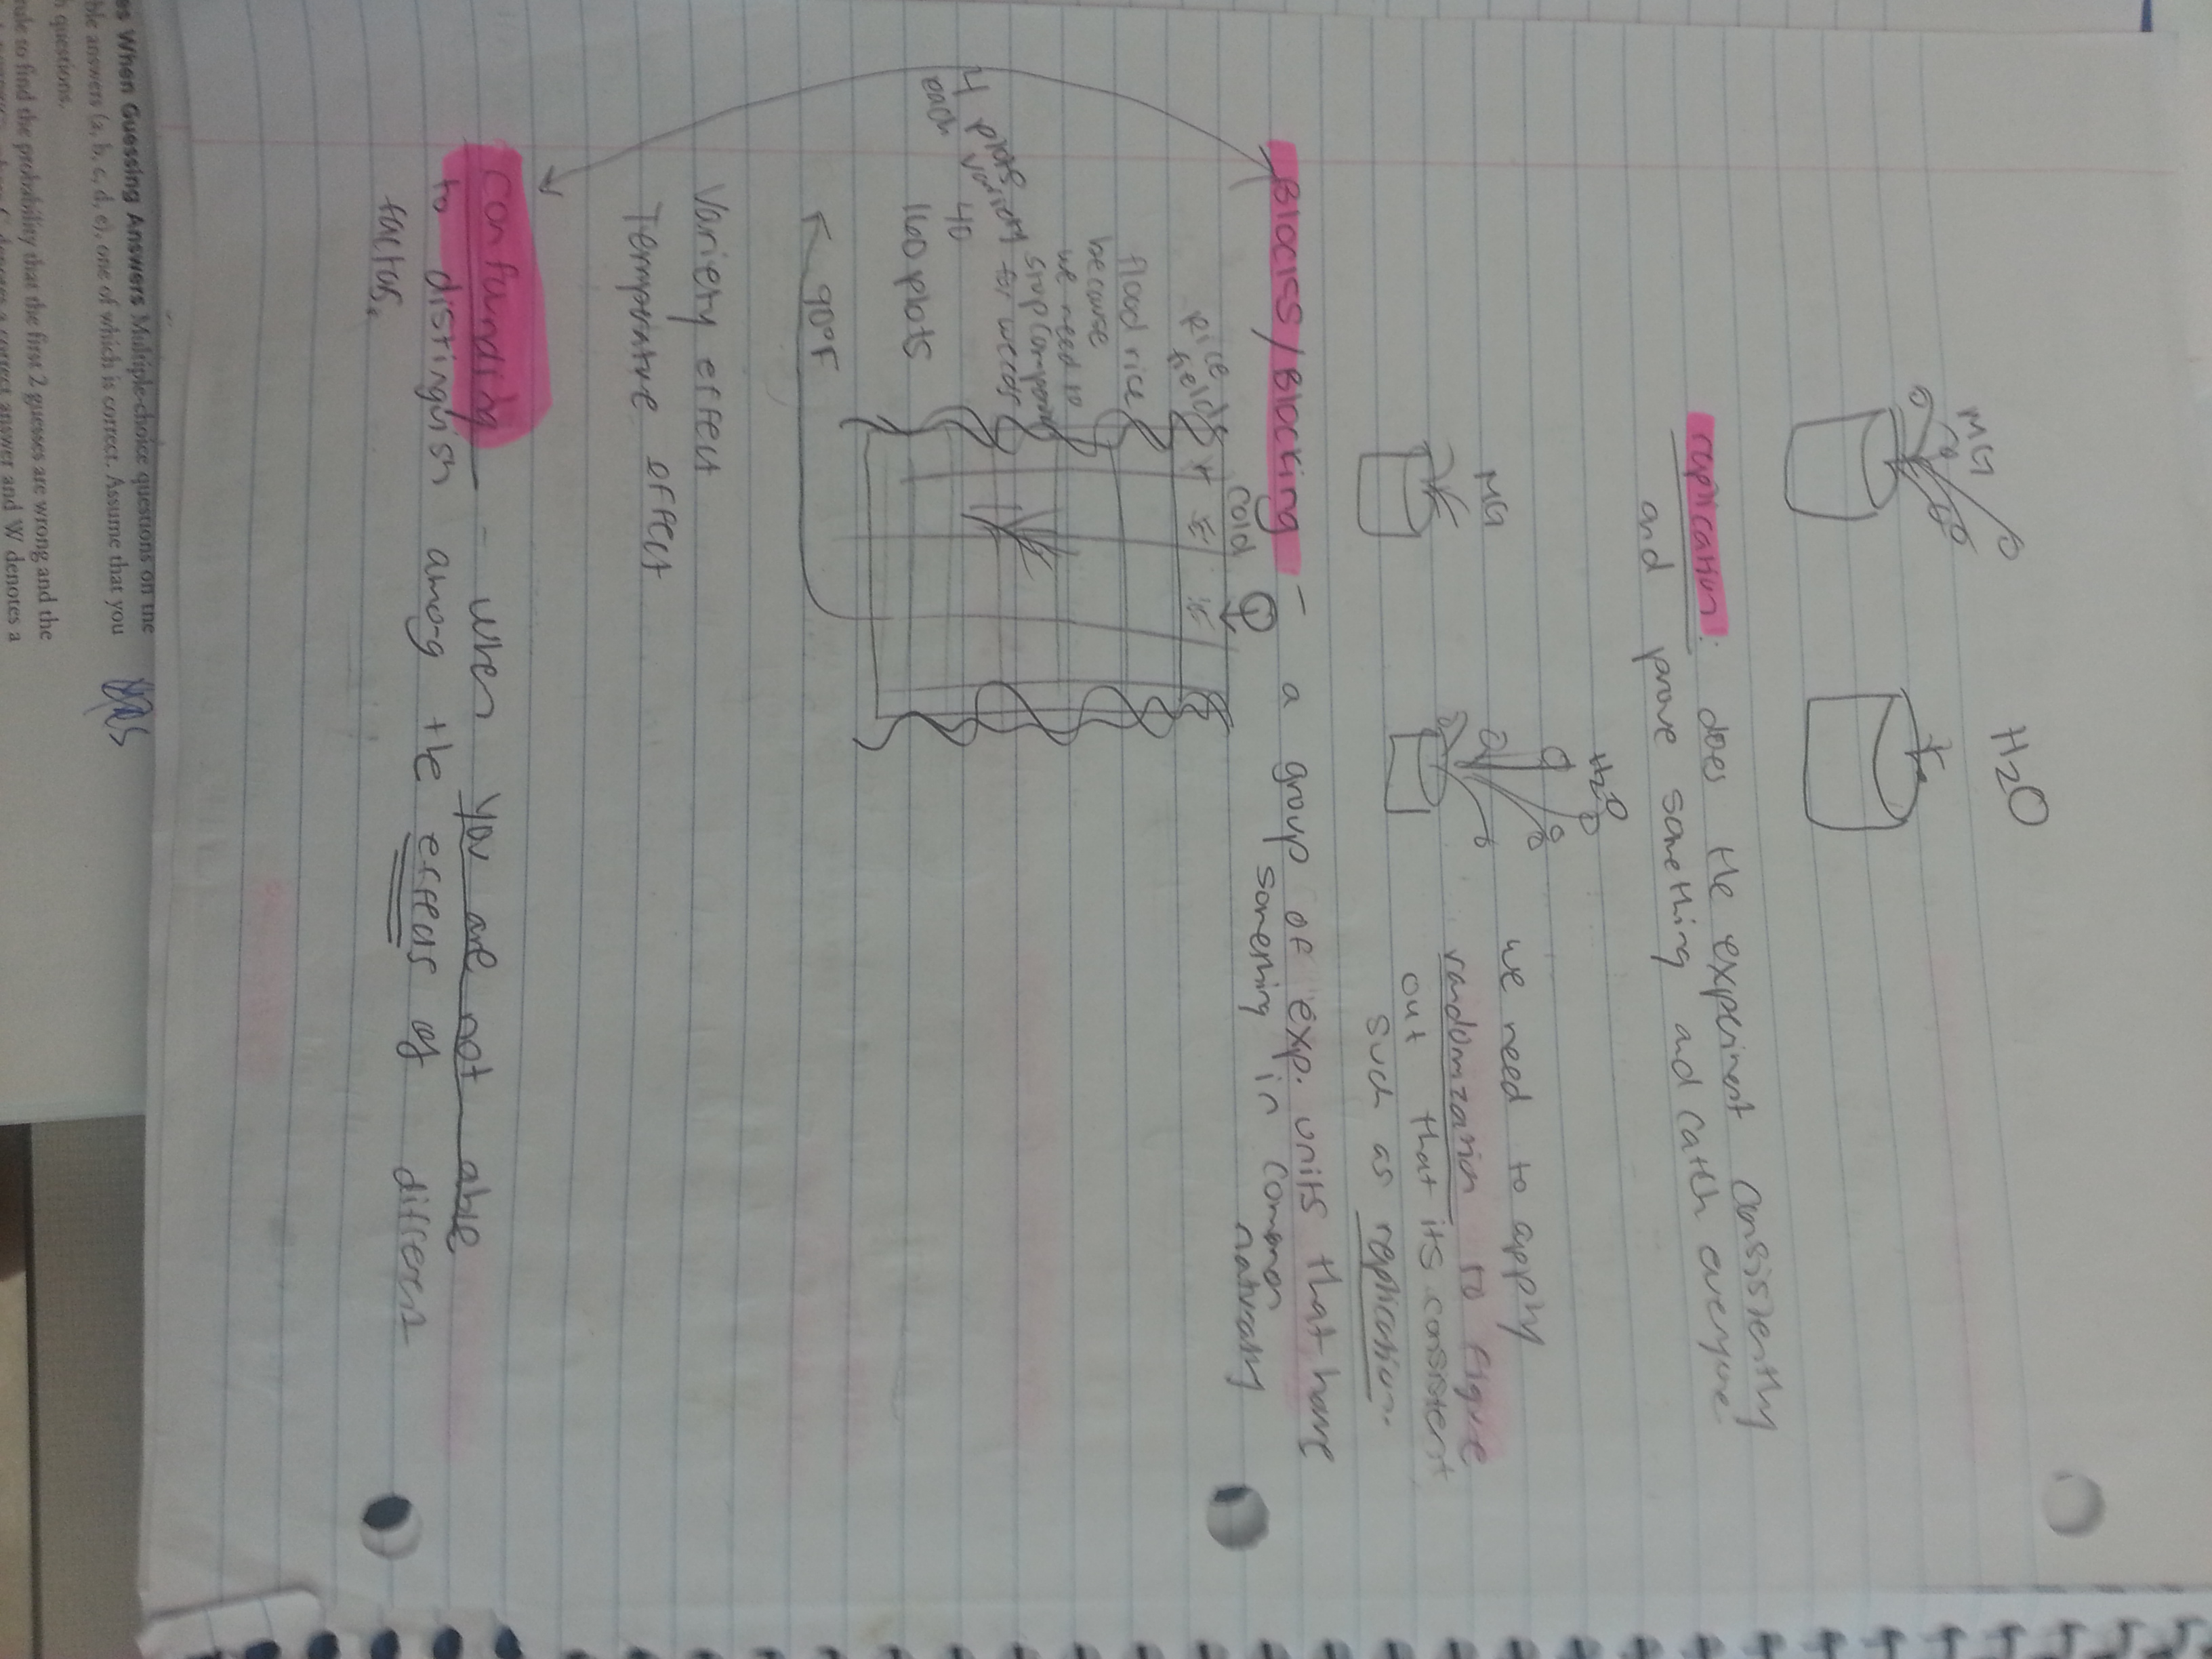 MG H2O
replication: does the experiment consistently
and prove something and catch everyone
MG H2O
we need to apply
randomization to figure
out that its consistent
such as replication.
Blocks/Blocking - a group of exp. units that have
something in common
naturally
cold
rice
field
flood rice
because
we need to
stop
for weeds
4 plots
each
variety
40
160 plots
90°F
Variety effect
Temperature effect
confunding - when you are not able
to distinguish among the effects of different
factors.
es When Guessing Answers Multiple-choice questions on the
ble answers (a, b, c, d, e), one of which is correct. Assume that you
n questions.
rule to find the probability that the first 2 guesses are wrong and the
denotes a correct answer and W denotes a